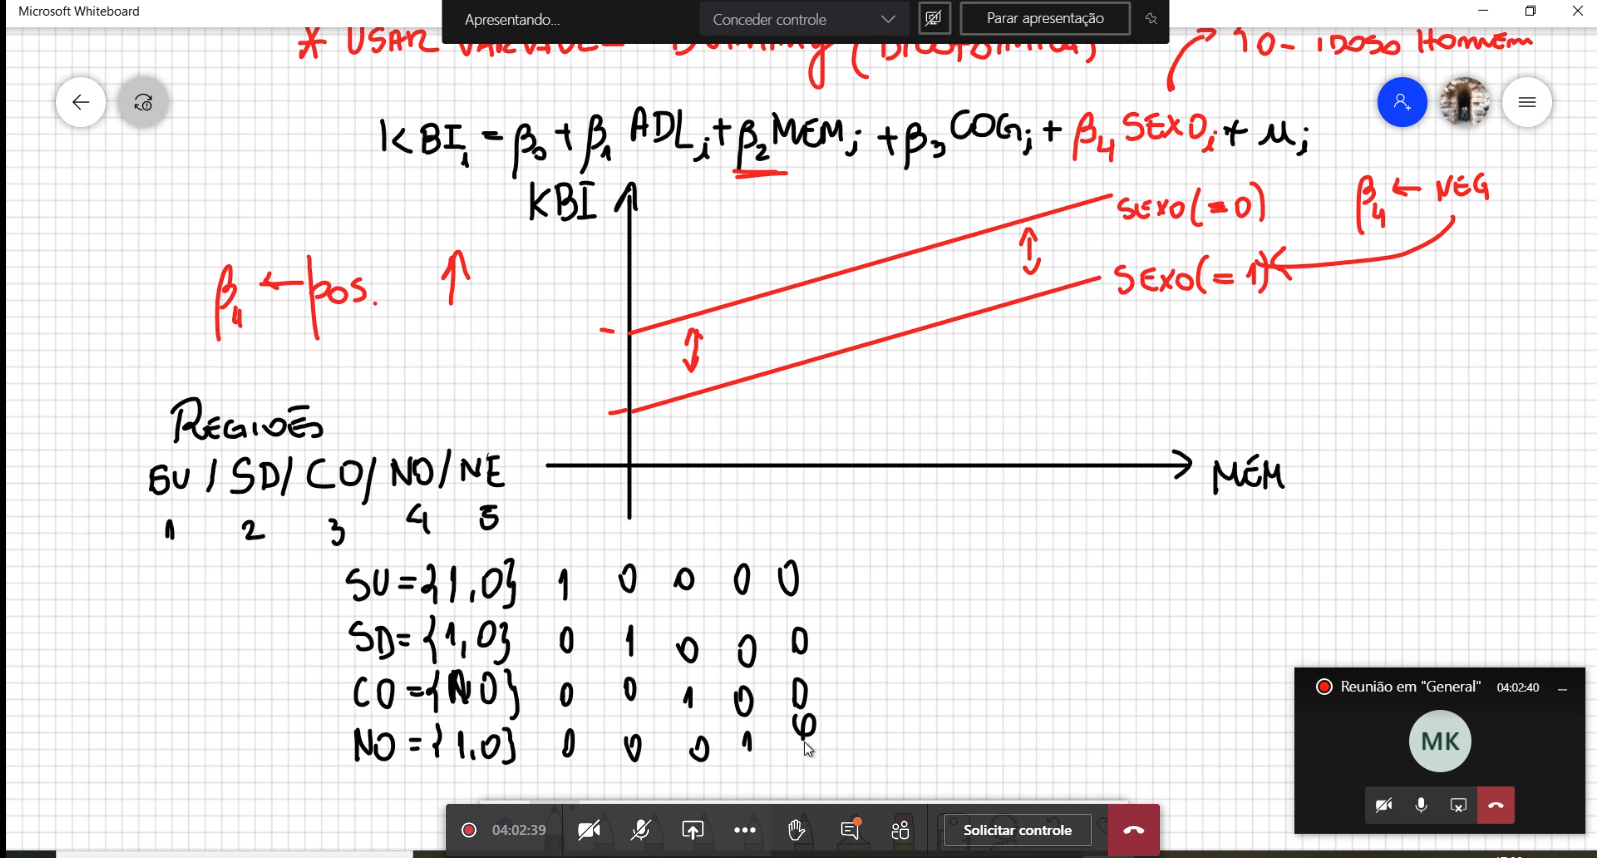 Microsoft Whiteboard
Apresentando...
Conceder controle
Parar apresentação
* USAR
Dummy (
10 - IDOSO HOMEM
KBIi = β0 + β1 ADLi + β2 MEMi + β3 COGi + β4 SEXOi + μi
KBI
SEXO (= 0)
β4 ← NEG
SEXO (= 1)
β4 ← pos. ↑
REGIOES
SU / SD / CO / NO / NE
1 2 3 4 5
MEM
SU = {1,0} 1 0 0 0 0
SD = {1,0} 0 1 0 0 0
CO = { 0} 0 0 1 0 0
NO = {1,0} 0 0 0 1
Reunião em "General" 04:02:40
MK
04:02:39
Solicitar controle